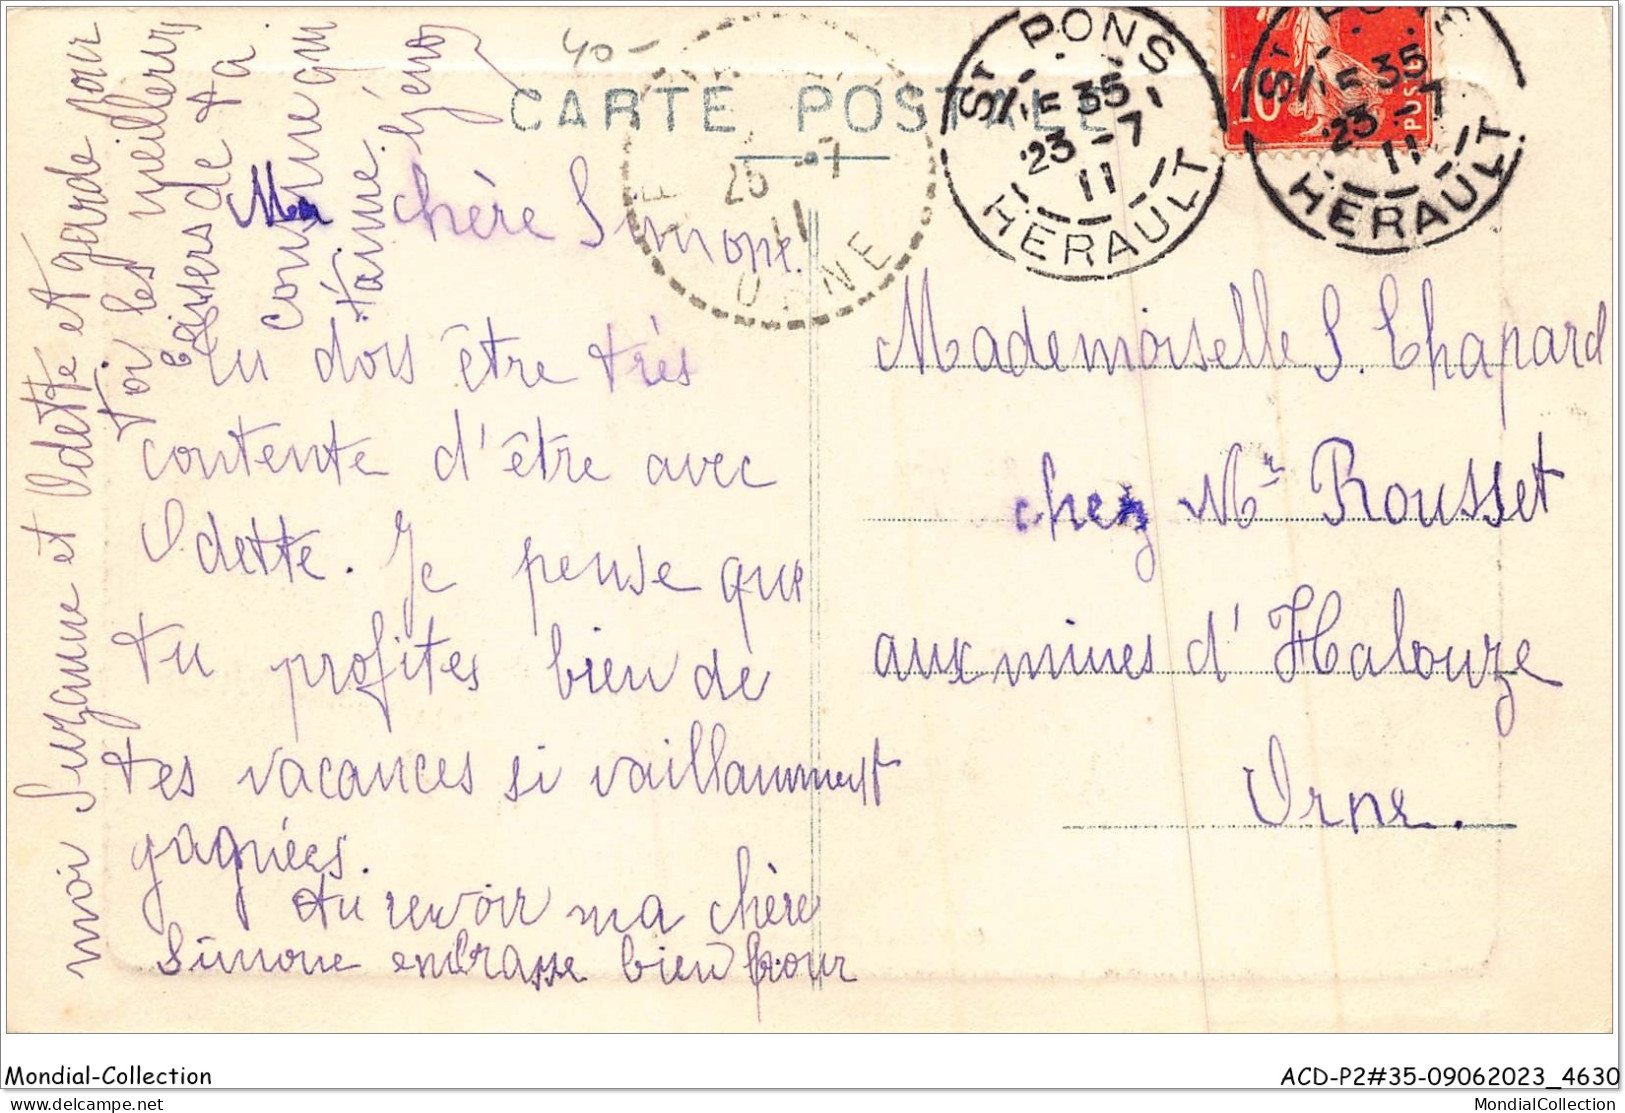 40-
CARTE POSTALE
ST PONS
35
23-7
11
HERAULT
ST PONS
35
23-7
11
HERAULT
10
POSTES
25 -7
11
ORNE
Ma chère Simone.
Tu dois être très
contente d'être avec
Odette. Je pense que
tu profites bien de
tes vacances si vaillamment
gagnées.
Au revoir ma chère
Simone embrasse bien pour
moi Suzanne et Odette et garde pour
toi les meilleurs
baisers de ta
cousine qui
t'aime.
Mademoiselle S. Chapard
chez Mr Rousset
aux mines d'Halouze
Orne.
Mondial-Collection
ACD-P2#35-09062023_4630
www.delcampe.net
MondialCollection